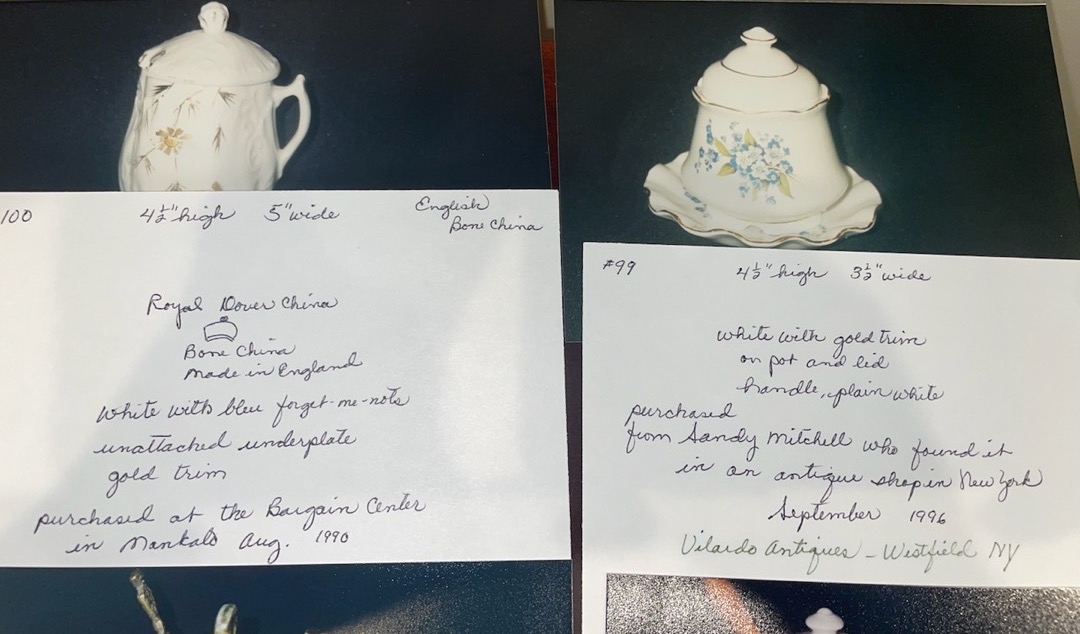 100 4 1/2" high 5" wide English
Bone China
Royal Dover China
Bone China
made in England
white with bleu forget-me-nots
unattached underplate
gold trim
purchased at the Bargain Center
in Mankato Aug. 1990
#99 4 1/2" high 3 1/2" wide
white with gold trim
on pot and lid
handle, plain white
purchased
from Sandy Mitchell who found it
in an antique shop in New York
September 1996
Vilardo Antiques - Westfield NY